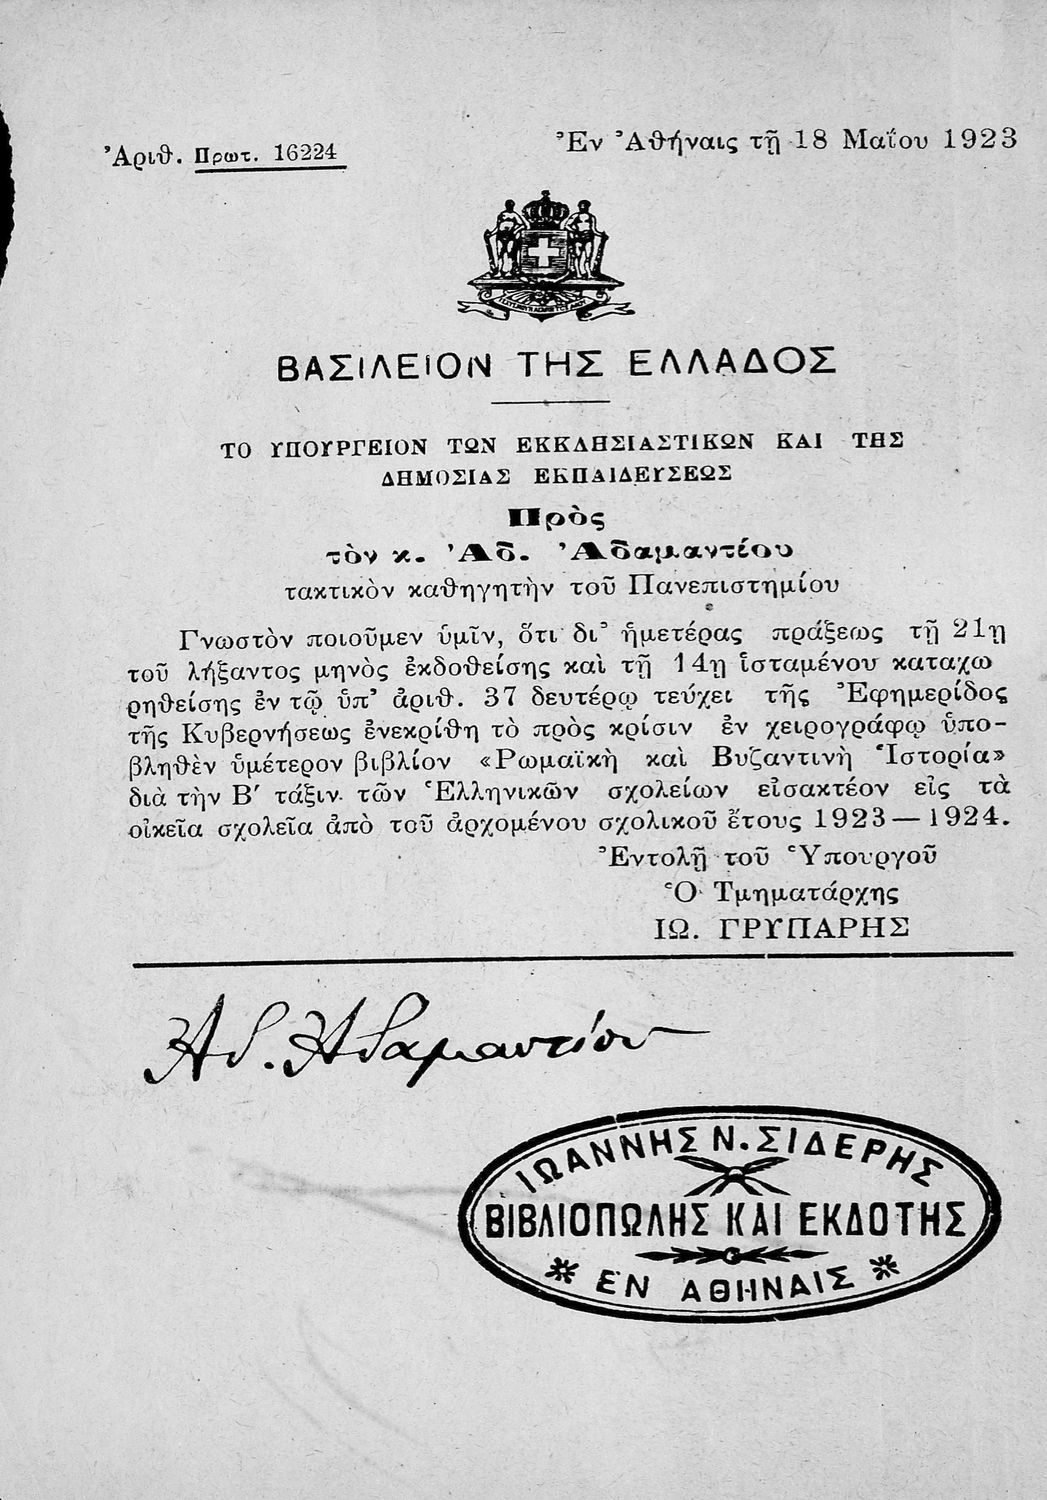 Ἀριθ. Πρωτ. 16224
Ἐν Ἀθήναις τῇ 18 Μαΐου 1923
ΒΑΣΙΛΕΙΟΝ ΤΗΣ ΕΛΛΑΔΟΣ
ΤΟ ΥΠΟΥΡΓΕΙΟΝ ΤΩΝ ΕΚΚΛΗΣΙΑΣΤΙΚΩΝ ΚΑΙ ΤΗΣ
ΔΗΜΟΣΙΑΣ ΕΚΠΑΙΔΕΥΣΕΩΣ
Πρὸς
τὸν κ. Ἀδ. Ἀδαμαντίου
τακτικὸν καθηγητὴν τοῦ Πανεπιστημίου
Γνωστὸν ποιοῦμεν ὑμῖν, ὅτι δι᾽ ἡμετέρας πράξεως τῇ 21ῃ
τοῦ λήξαντος μηνὸς ἐκδοθείσης καὶ τῇ 14ῃ ἱσταμένου καταχω
ρηθείσης ἐν τῷ ὑπ᾽ ἀριθ. 37 δευτέρῳ τεύχει τῆς Ἐφημερίδος
τῆς Κυβερνήσεως ἐνεκρίθη τὸ πρὸς κρίσιν ἐν χειρογράφῳ ὑπο-
βληθὲν ὑμέτερον βιβλίον «Ρωμαϊκὴ καὶ Βυζαντινὴ Ἱστορία»
διὰ τὴν Β′ τάξιν τῶν Ἑλληνικῶν σχολείων εἰσακτέον εἰς τὰ
οἰκεῖα σχολεῖα ἀπὸ τοῦ ἀρχομένου σχολικοῦ ἔτους 1923—1924.
Ἐντολῇ τοῦ Ὑπουργοῦ
Ὁ Τμηματάρχης
ΙΩ. ΓΡΥΠΑΡΗΣ
Ἀδ. Ἀδαμαντίου
ΙΩΑΝΝΗΣ Ν. ΣΙΔΕΡΗΣ
ΒΙΒΛΙΟΠΩΛΗΣ ΚΑΙ ΕΚΔΟΤΗΣ
ΕΝ ΑΘΗΝΑΙΣ